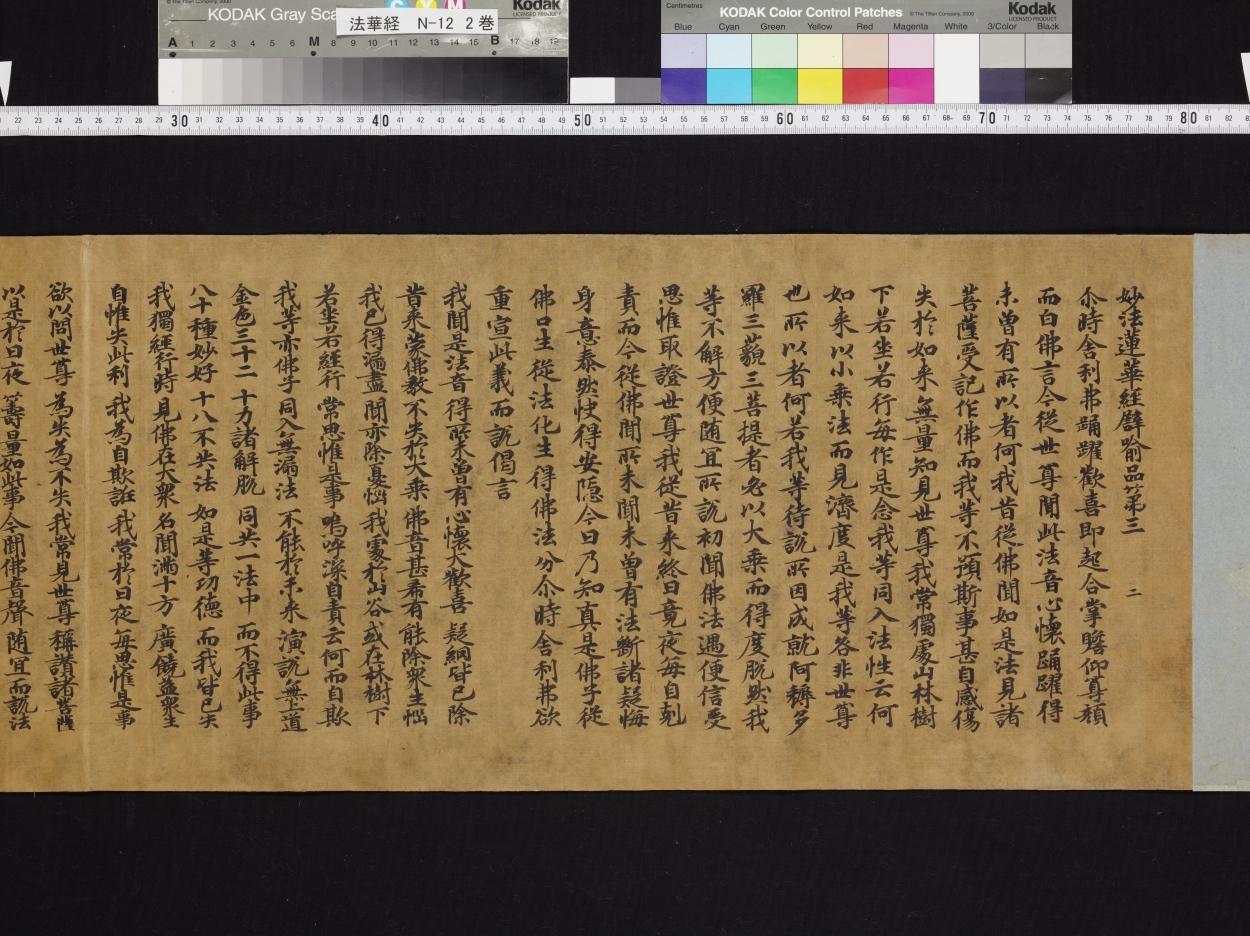 KODAK Gray Sca
C Y M
Kodak
LICENSED PRODUCT
© The Tiffen Company, 2000
法華経 N-12 2巻
A 1 2 3 4 5 6 M 8 9 10 11 12 13 14 15 B 17 18 19
Centimetres
KODAK Color Control Patches
© The Tiffen Company, 2000
Kodak
LICENSED PRODUCT
Blue Cyan Green Yellow Red Magenta White 3/Color Black
22 23 24 25 26 27 28 29 30 31 32 33 34 35 36 37 38 39 40 41 42 43 44 45 46 47 48 49 50 51 52 53 54 55 56 57 58 59 60 61 62 63 64 65 66 67 68 69 70 71 72 73 74 75 76 77 78 79 80 81 82
妙法蓮華經譬喻品第三 二
尒時舍利弗踊躍歡喜即起合掌瞻仰尊顏
而白佛言今從世尊聞此法音心懷踊躍得
未曾有所以者何我昔從佛聞如是法見諸
菩薩受記作佛而我等不預斯事甚自感傷
失於如来無量知見世尊我常獨處山林樹
下若坐若行每作是念我等同入法性云何
如来以小乘法而見濟度是我等咎非世尊
也所以者何若我等待說所因成就阿耨多
羅三藐三菩提者必以大乘而得度脫然我
等不解方便随宜所說初聞佛法遇便信受
思惟取證世尊我從昔来終日竟夜每自剋
責而今從佛聞所未聞未曾有法斷諸疑悔
身意泰然快得安隱今日乃知真是佛子從
佛口生從法化生得佛法分尒時舍利弗欲
重宣此義而說偈言
我聞是法音 得所未曾有 心懷大歡喜 疑網皆已除
昔来蒙佛教 不失於大乘 佛音甚希有 能除眾生惱
我已得漏盡 聞亦除憂惱 我處於山谷 或在林樹下
若坐若經行 常思惟是事 嗚呼深自責 云何而自欺
我等亦佛子 同入無漏法 不能於未来 演說無上道
金色三十二 十力諸解脫 同共一法中 而不得此事
八十種妙好 十八不共法 如是等功德 而我皆已失
我獨經行時 見佛在大眾 名聞滿十方 廣饒益眾生
自惟失此利 我為自欺誑 我常於日夜 每思惟是事
欲以問世尊 為失為不失 我常見世尊 稱讚諸菩薩
以是於日夜 籌量如此事 今聞佛音聲 随宜而說法